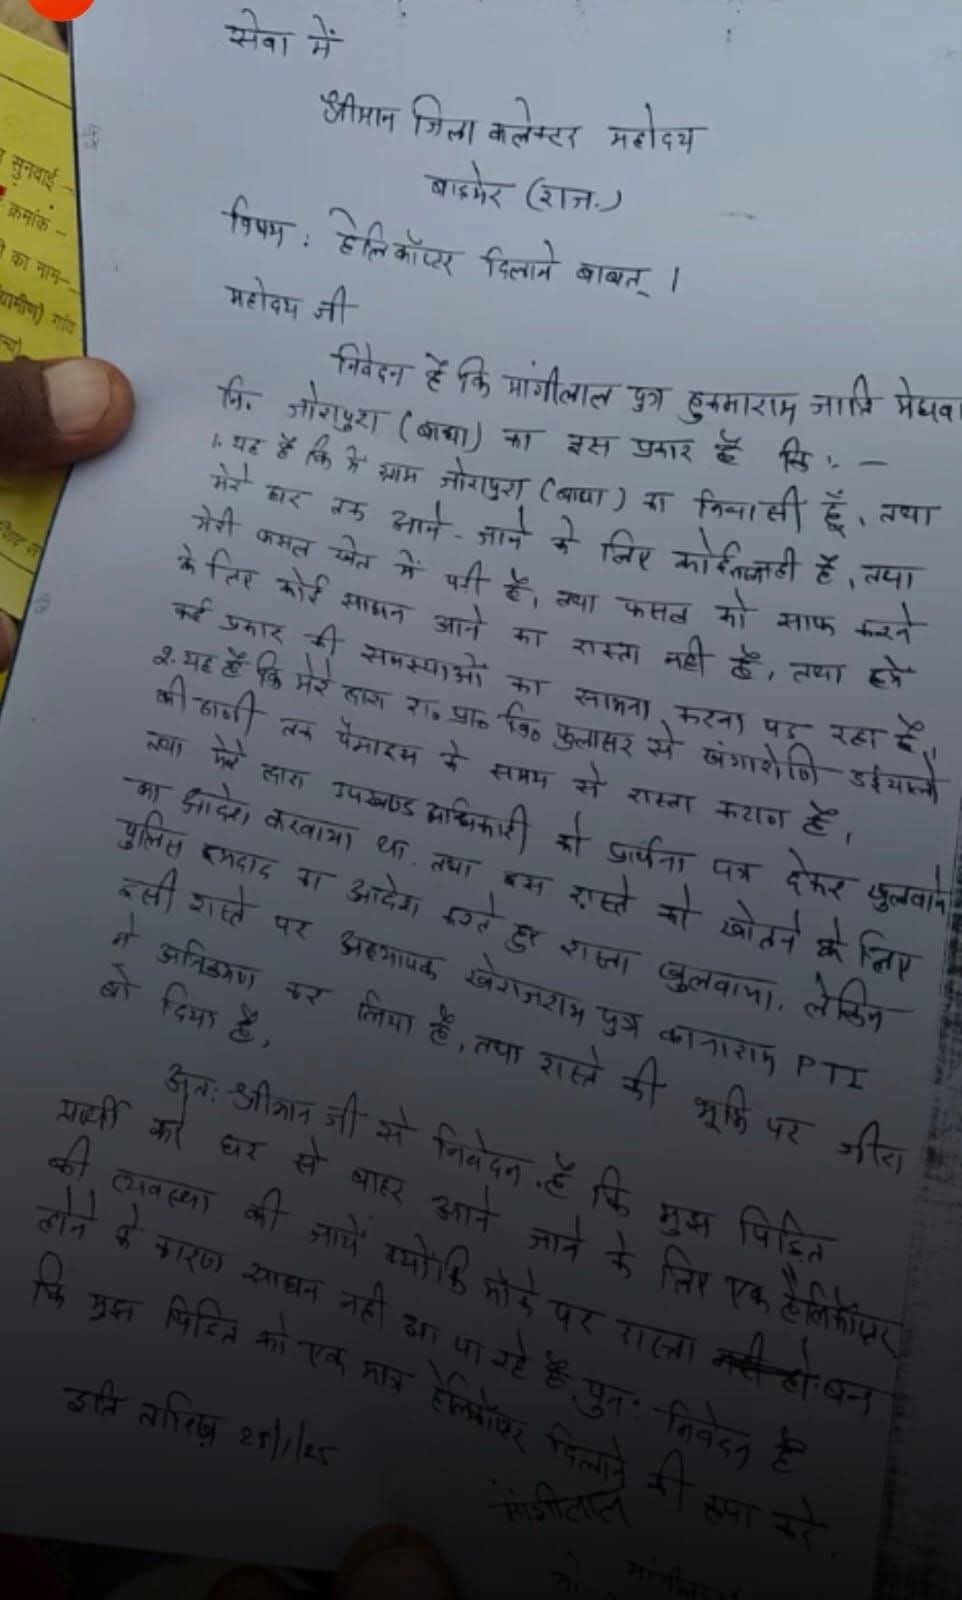 सेवा में
श्रीमान जिला कलेक्टर महोदय
बाड़मेर (राज.)
विषय : हेलिकॉप्टर दिलाने बाबत् ।
महोदय जी
निवेदन हैं कि मांगीलाल पुत्र हुकमाराम जाति मेघवा
नि. जोरापुरा (बाघा) का इस प्रकार हैं कि :-
1. यह हैं कि मैं ग्राम जोरापुरा (बाघा) का निवासी हूँ, तथा
मेरे घर तक आने-जाने के लिए कोई नहीं हैं, तथा
मेरी फसल खेत में पडी हैं, तथा फसल को साफ करने
के लिए कोई साधन आने का रास्ता नहीं हैं, तथा हमें
कई प्रकार की समस्याओं का सामना करना पड रहा हैं,
2. यह हैं कि मेरे द्वारा रा० प्रा० वि० फुलासर से
की ढाणी तक पैमाइस के समय से रास्ता कटाण हैं,
तथा मेरे द्वारा उपखण्ड अधिकारी को प्रार्थना पत्र देकर खुलवाने
का आदेश करवाया था. तथा इस रास्ते को खोलने के लिए
पुलिस इमदाद का आदेश करते हुए रास्ता खुलवाया. लेकिन
इसी रास्ते पर अध्यापक खेराजराम पुत्र कानाराम PTI
ने अतिक्रमण कर लिया हैं, तथा रास्ते की भूमि पर जीरा
बो दिया हैं,
अतः श्रीमान जी से निवेदन हैं कि मुझ पिडित
प्रार्थी को घर से बाहर आने जाने के लिए एक हैलिकॉप्टर
की व्यवस्था की जायें क्योंकि मौके पर रास्ता बन
होने के कारण साधन नहीं आ पा रहे हैं, पुनः निवेदन हैं
कि मुझ पिडित को एक मात्र हेलिकॉप्टर दिलाने की कृपा करे.
इति तारिख 25/1/25
मांगीलाल
मांगीलाल
सुनवाई -
क्रमांक -
का नाम-
गांव